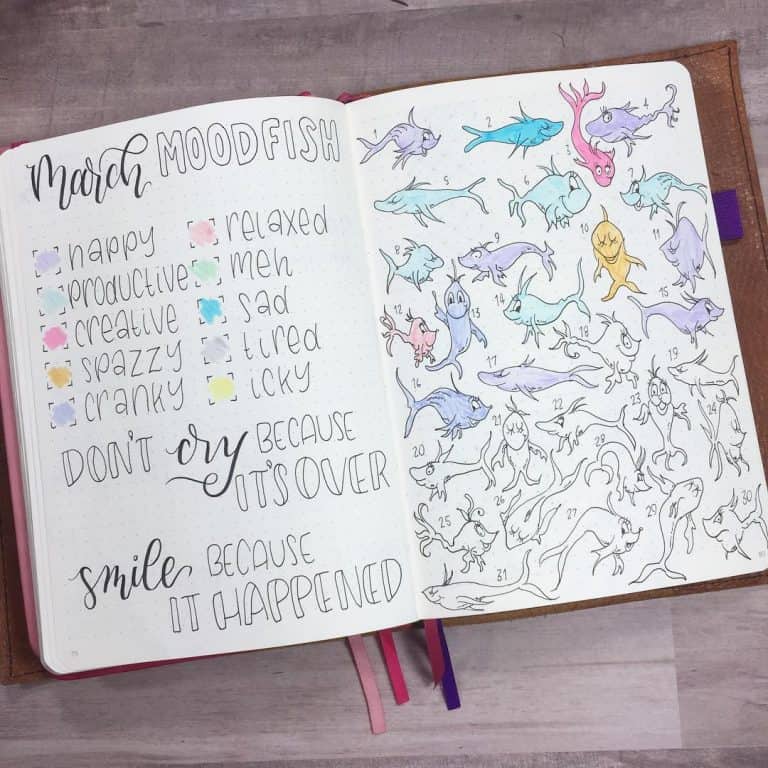 March MOODFISH
happy relaxed
productive meh
creative sad
spazzy tired
cranky icky
DON'T cry BECAUSE
IT'S OVER
smile BECAUSE
IT HAPPENED
1 2 3 4
5 6
8 9 10 11
12 13 14 15
16 17 18 19
20 21 22 23 24
25 26 27 28 29 30
31